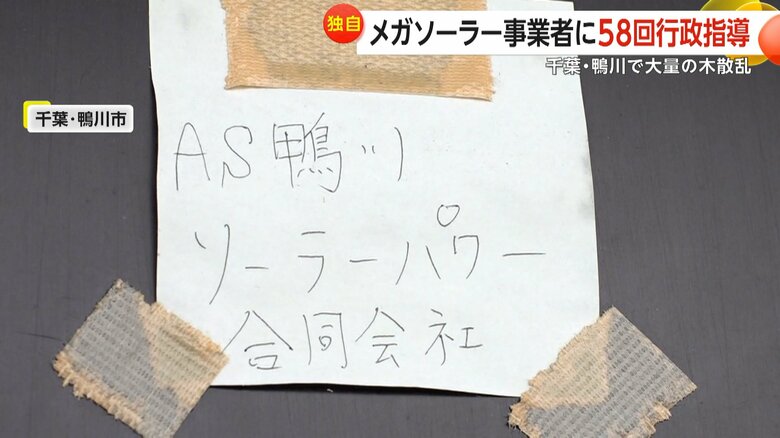 独自 メガソーラー事業者に58回行政指導
千葉・鴨川で大量の木散乱
千葉・鴨川市
AS鴨川
ソーラーパワー
合同会社